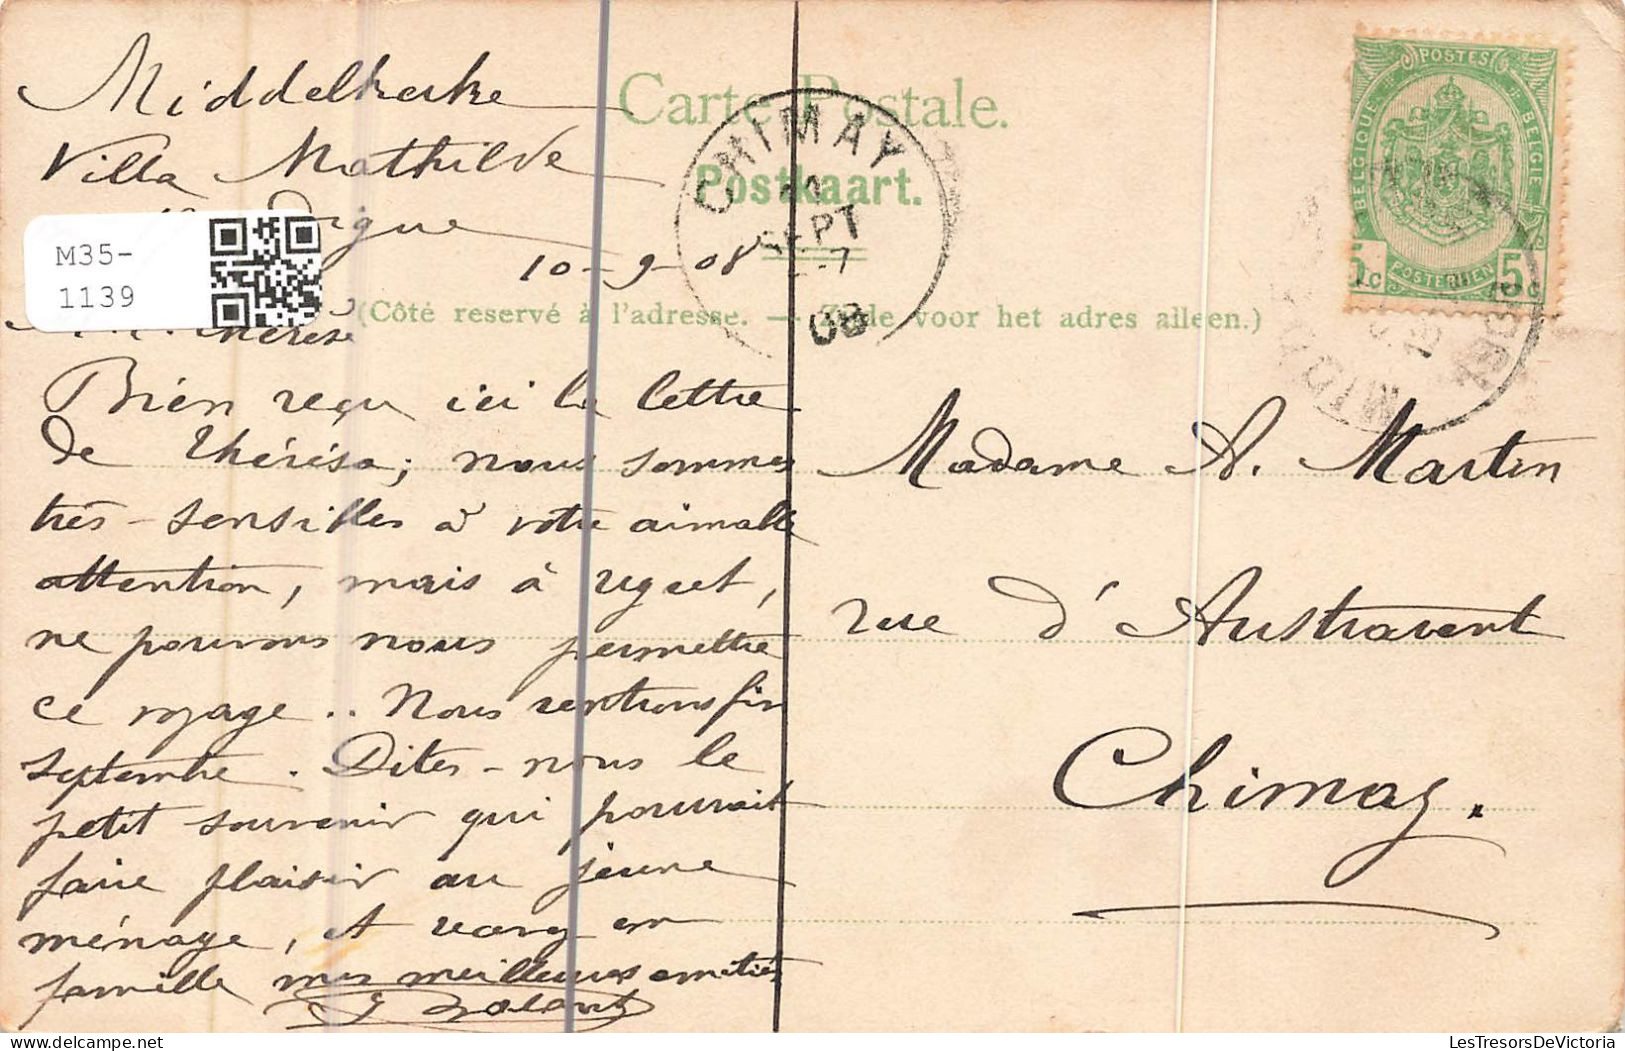 Middelkerke
Villa Mathilde
Digue
10-9-08
M35-
1139
Thérèse
Bien reçu ici la lettre
de Thérésa; nous sommes
très-sensibles à votre aimable
attention, mais à regret,
ne pouvons nous permettre
ce voyage.. Nous rentrons fin
septembre. Dites-nous le
petit souvenir qui pourrait
faire plaisir au jeune
ménage, et recevez en
famille mes meilleures amitiés
Carte Postale.
Postkaart.
(Côté reservé à l'adresse. — Zijde voor het adres alleen.)
CHIMAY
SEPT
08
POSTES
BELGIQUE
BELGIE
POSTERIJEN
5c 5c
Madame A. Martin
rue d'Austravent
Chimay.
LesTresorsDeVictoria.com